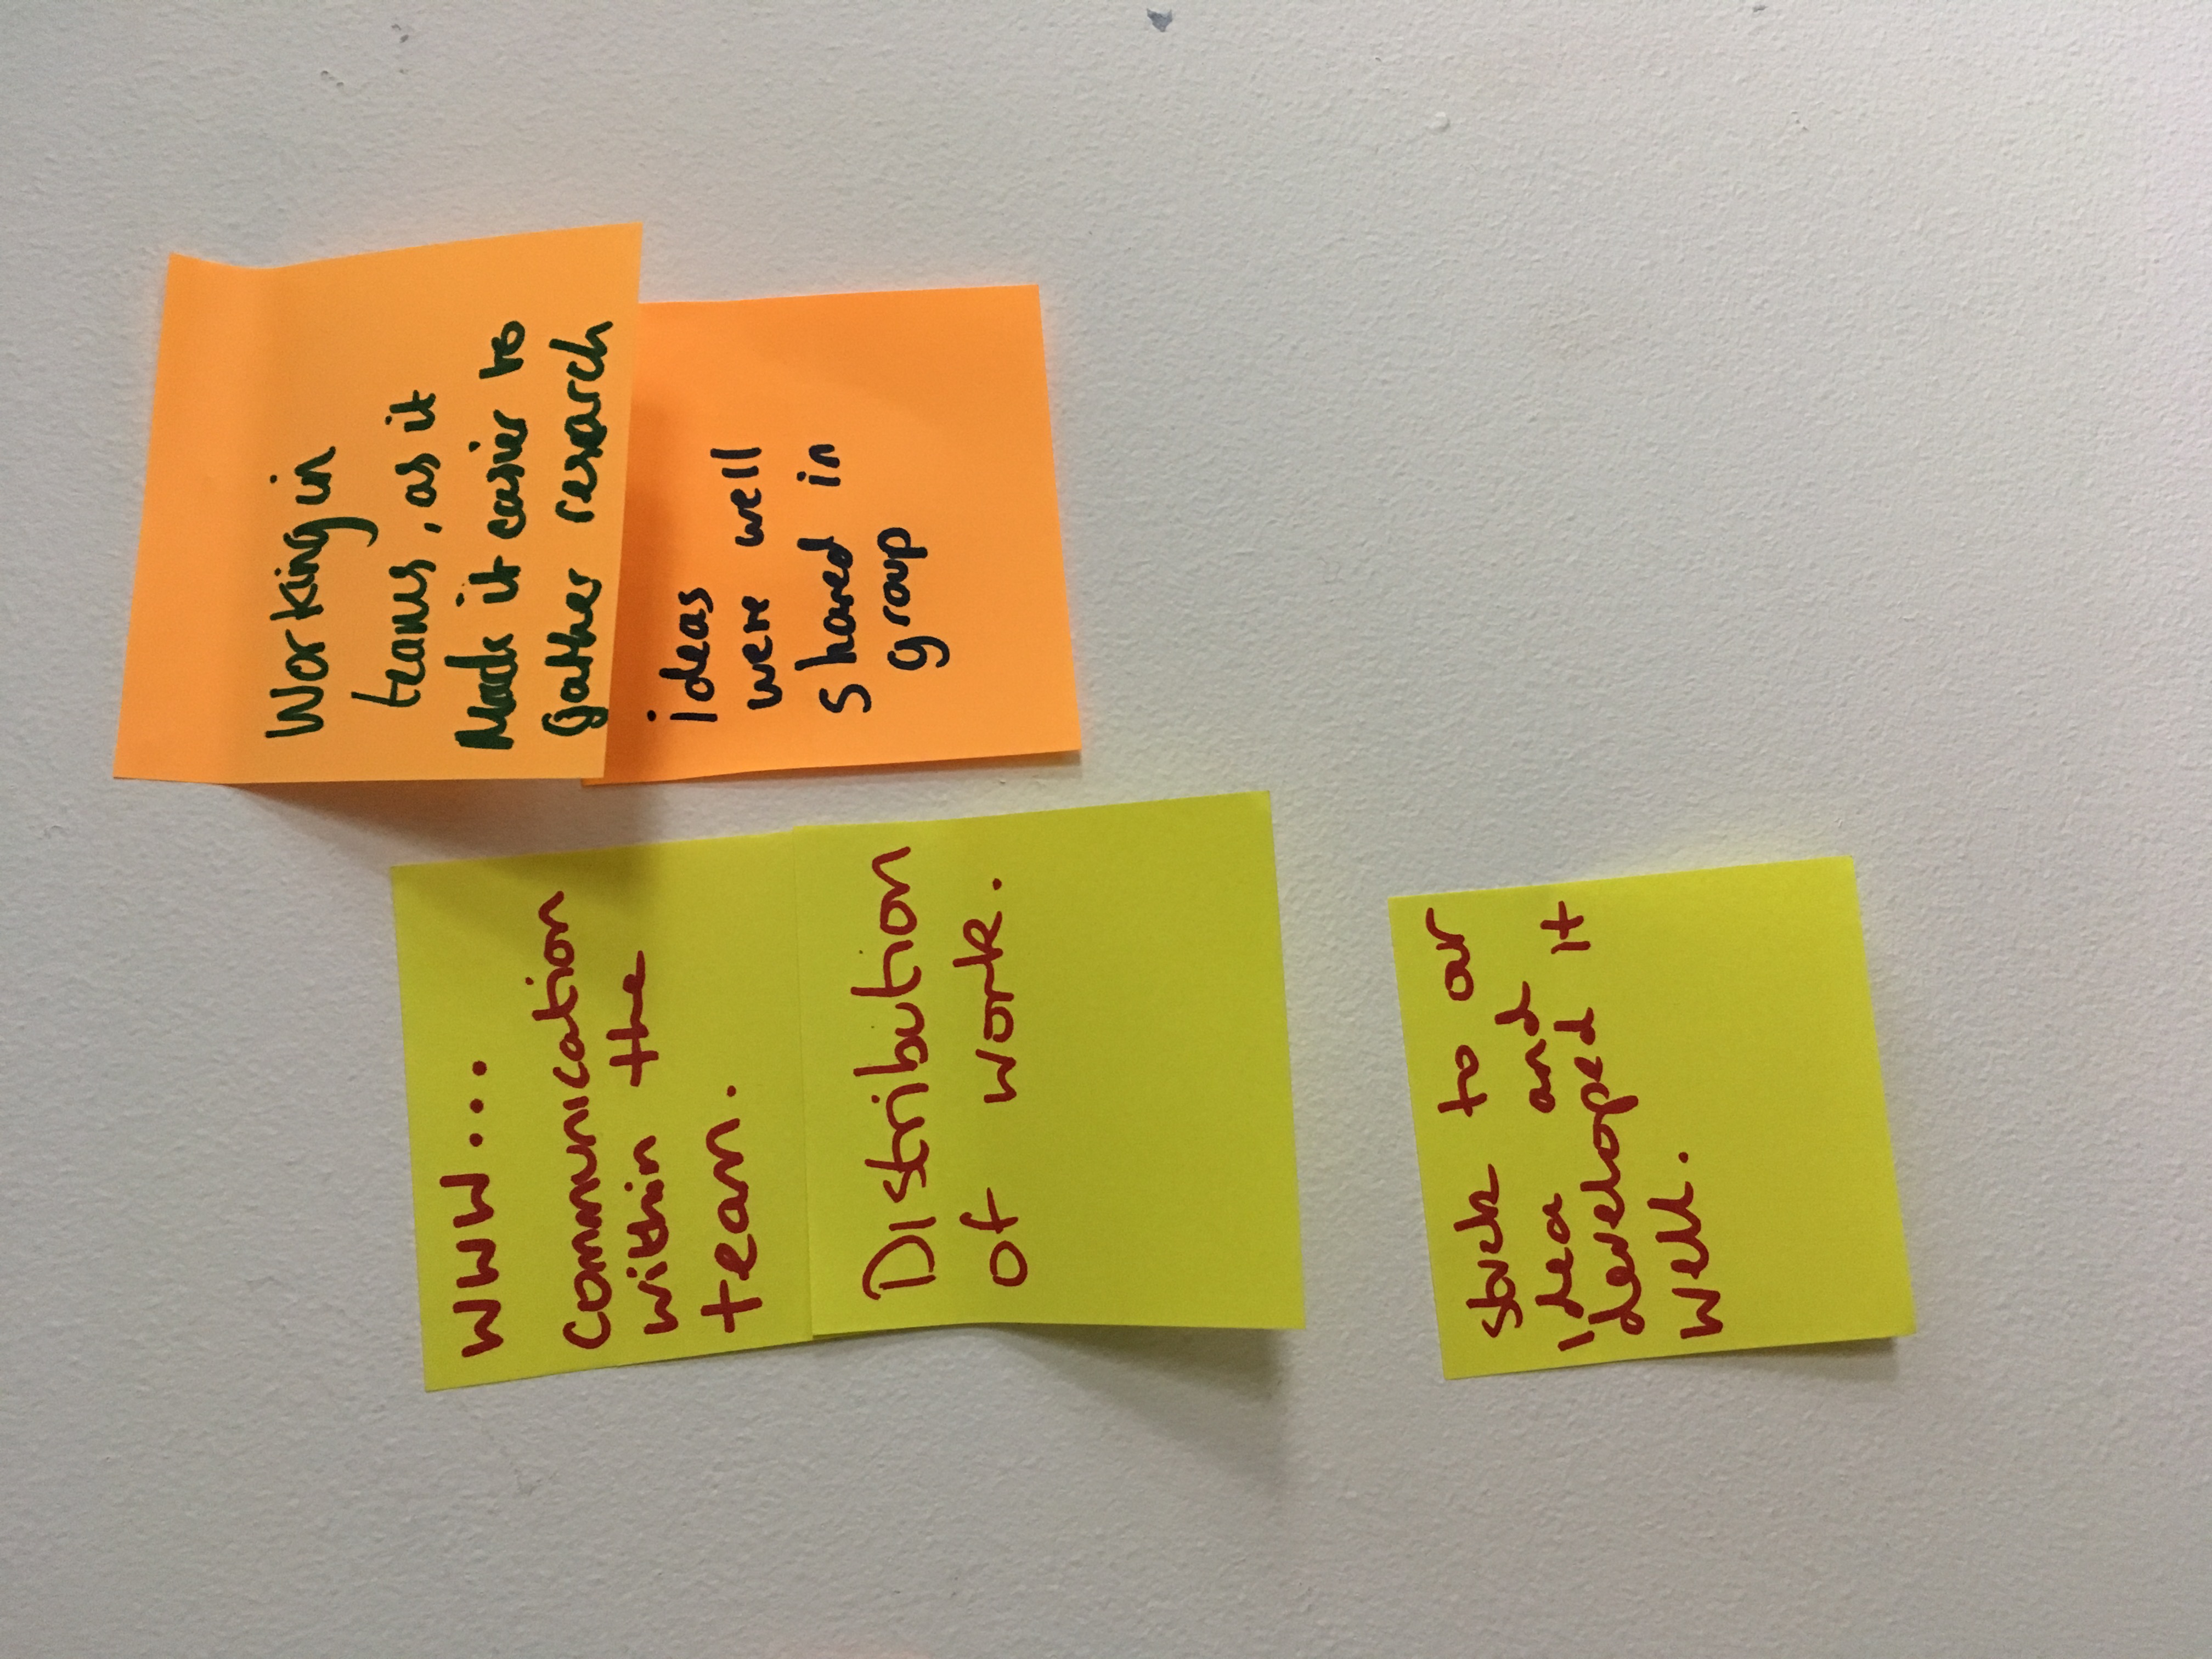 WWW...
Communication
within the
team.
Distribution
of work.
Stuck to our
idea and
developed it
well.
Working in
teams, as it
Made it easier to
gather research
ideas
were well
shared in
group